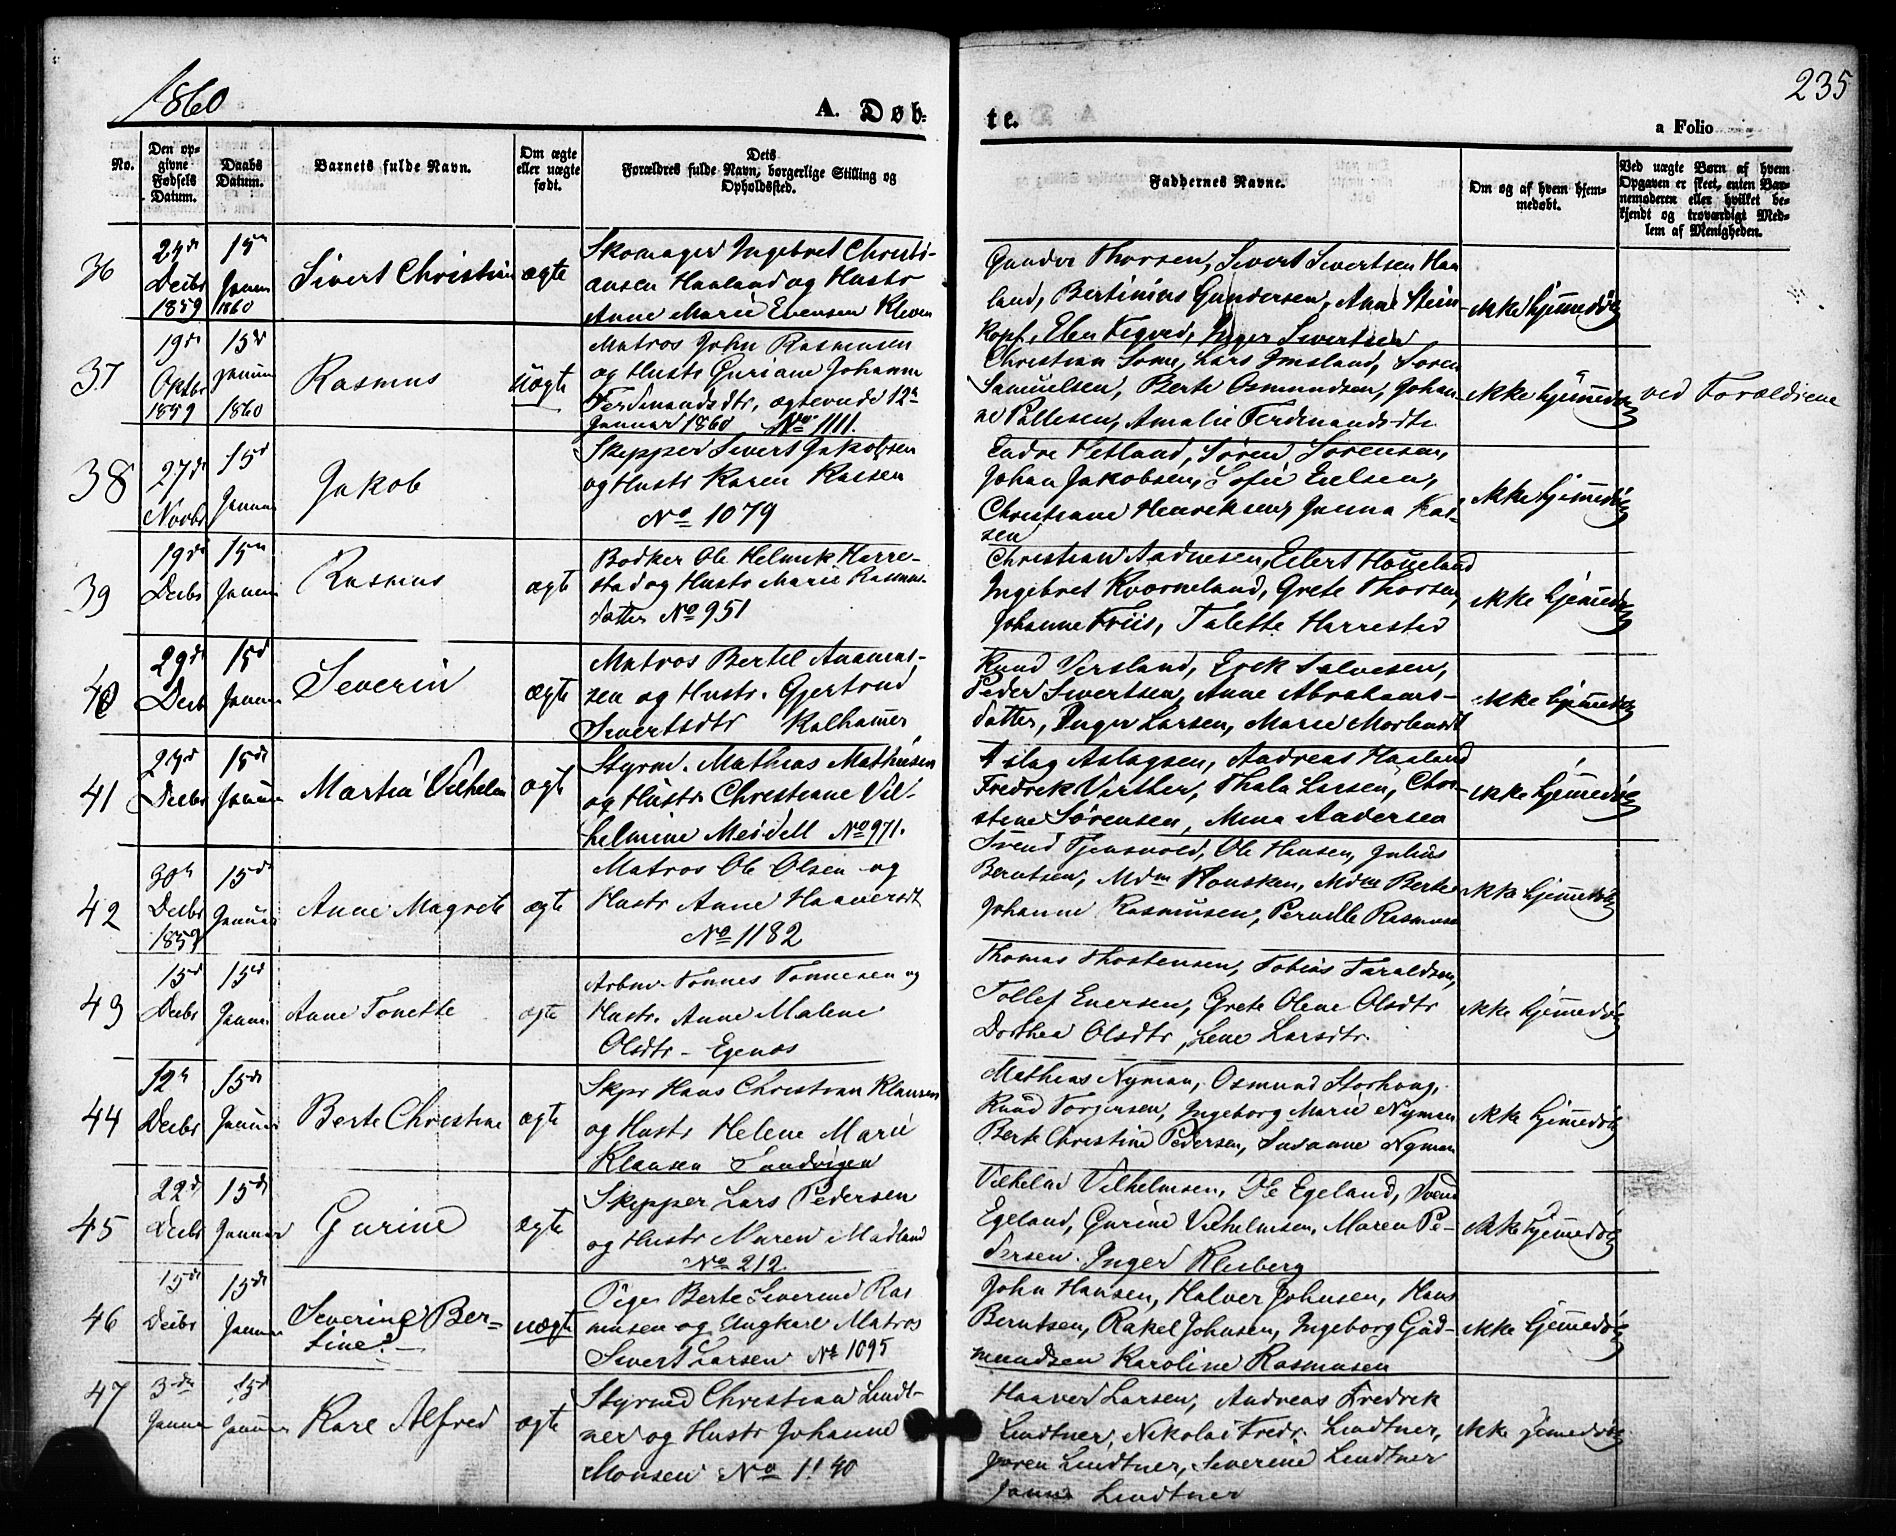 1860
235
A. Døb-
te.
a Folio
No.
Den op-
givne
Fødsels
Datum.
Daabs
Datum.
Barnets fulde Navn.
Om ægte
eller uægte
født.
Dets
Forældres fulde Navn, borgerlige Stilling og
Opholdssted.
Faddernes Navne.
Om og af hvem hjem-
medøbt.
Ved uægte Børn af hvem
Opgaven er skeet, enten Bar-
nemoderen eller hvilket be-
kjendt og troværdigt Med-
lem af Menigheden.
36
Decbr
1859
15
Januar
1860
Sivert Christian
ægte
Skomager Ingebret Christi-
ansen Haaland og Hustr
Anne Marie Evensen Kleven
Gunder Thorsen, Sivert Sivertsen Haa
land, Bertinius Gundersen, Anne Stein
kopf, Inger Sivertsen
ikke hjemmedøbt
37
19de
Oktbr
1859
15de
Januar
1860
Rasmus
uægte
Matros John Rasmusen
og Hustr Guriane Johanne
Ferdinandsdtr, ægteviede 12te
Januar 1860 No 1111.
Christian Lars Imsland, Søren
Samuelsen, Berte Osmundsen, Johan-
ne Pallesen, Amalie Ferdinandsdtr
ikke hjemmedøbt
ved Forældrene
38
27de
Novbr
15de
Januar
Jakob
Skipper Sivert Jakobsen
og Hustr Karen Kaisen
No 1079
Endre Hetland, Søren Sørensen,
Johan Jakobsen, Sofie
Christiane Henriksen, Janna
sen
ikke hjemmedøbt
39
19de
Decbr
15de
Januar
Rasmus
ægte
Bødker Ole Helmik Harre-
stad og Hustr Marie Rasmus-
datter No 951
Christian Aadnesen, Eilert Houeland
Ingebret Kvorneland, Grete Thorsen,
Johanne Friis, Talette Harrestad
ikke hjemmedøbt
40
29de
Decbr
15de
Januar
Severin
ægte
Matros Bertel Aanens-
sen og Hustr. Gjertrud
Sivertsdtr Kalhamer
Knud Versland, Erik Salvesen,
Peder Sivertsen, Anne Abrahams-
datter, Inger Larsen, Marie
ikke hjemmedøbt
41
Decbr
15de
Januar
Martin Vilhelm
ægt
Styrm. Mathias Mathiesen
og Hustr Christiane Vil-
helmine Meidell No 971.
Aslag Aslagsen, Andreas Haaland
Fredrik Thala Larsen, Chri-
stene Sørensen, Mina Andersen
ikke hjemmedøbt
42
30te
Decbr
1859
15de
Januar
Anne Magrete
ægte
Matros Ole Olsen og
Hustr Anne Haaversdt
No 1182
Svend Tjensvold, Ole Hansen, Julius
Berntsen, Mdm Housken, Mdm Berte
Johanne Rasmusen, Pernille Rasmusen
ikke hjemmedøbt
43
15de
Decbr
15de
Januar
Anne Tonette
ægte
Arbm. Tønnes Tønnesen og
Hustr. Anne Malene
Olsdtr - Egenæs
Thomas Thostensen, Tobias Taraldsen,
Tollef Enersen, Grete Olene Olsdtr
Dorthea Olsdtr, Lene Larsdtr.
ikke hjemmedøbt
44
12te
Decbr
15de
Januar
Berte Christine
ægte
Skpr Hans Christian Klausen
og Hustr Helene Marie
Klausen Sandvigen
Mathias Nyman, Osmund Storhoug,
Knud Torgersen, Ingeborg Marie Nyman
Berte Christine Pedersen, Susanne Nyman
ikke hjemmedøbt
45
22de
Decbr
15de
Januar
Gurine
ægte
Skipper Lars Pedersen
og Hustr Maren Madland
No 212.
Vilhelm Vilhelmsen, Ole Egeland, Svend
Egeland, Gurine Vilhelmsen, Maren Pe-
dersen. Inger Kleiberg
ikke hjemmedøbt
46
15de
Decbr
15de
Januar
Severine Ber-
tine
uægte
Pige Berte Severine Ras
musen og Ungkarl Matros
Sivert Larsen No 1095
John Hansen, Halver Johnsen, Hans
Berntsen, Rakel Johnsen, Ingeborg Gud-
mundsen Karoline Rasmusen
ikke hjemmedøbt
47
3de
Januar
15de
Januar
Karl Alfred
ægte
Styrmd Christian Lindt-
ner og Hustr Johanne
Monsen No 1140
Haaver Larsen, Andreas Fredrik
Lindtner, Nikolai Fredr. Lindtner,
Lindtner, Severine Lindtner
Janna Lindtner
ikke hjemmedøbt